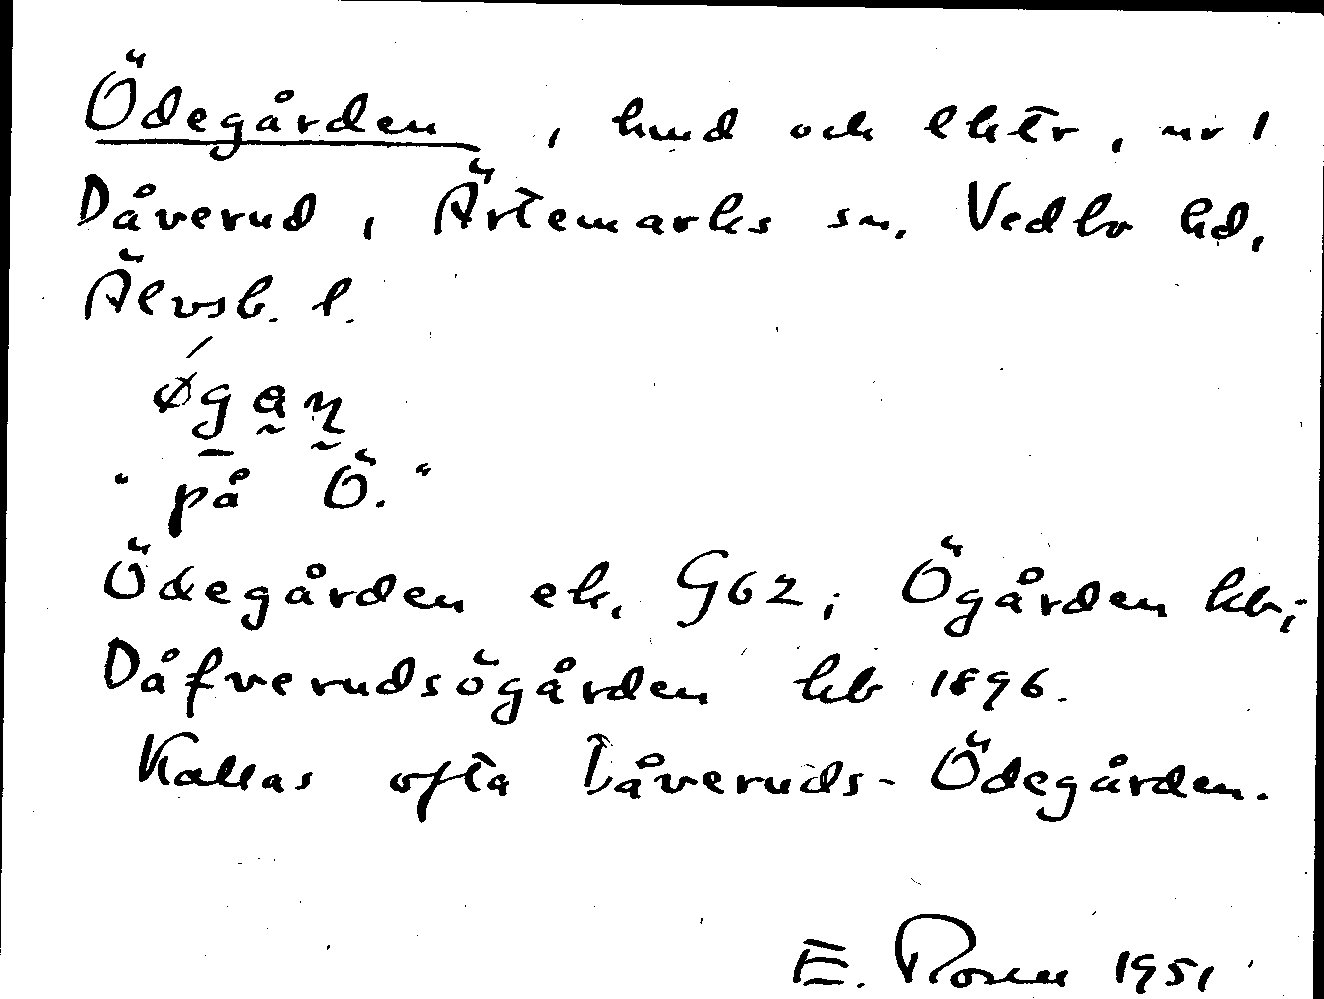 Ödegården, hmd och lhtr, nr 1
Dåverud, Ärtemarks sn. Vedbo hd,
Älvsb. l.
øgan
"på Ö."
Ödegården ek. G62; Ögården kb;
Dåfverudsögården kb 1896.
Kallas ofta Dåveruds-Ödegården.
E. Rosen 1951